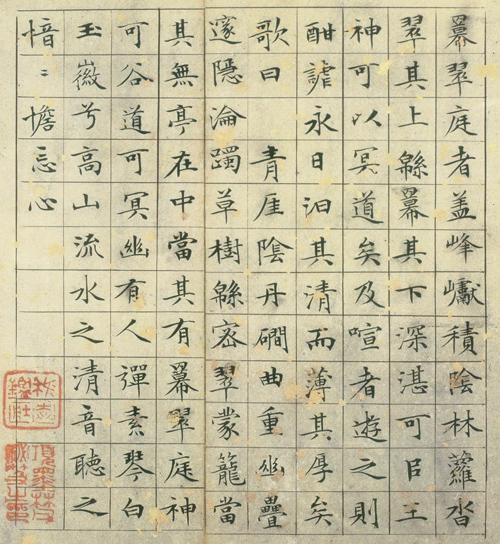 冪翠庭者盖峰巘積陰林蘿沓
翠其上緜冪其下深湛可㠯王
神可以冥道矣及喧者遊之則
酣謔永日汩其清而薄其厚矣
歌曰　青厓陰丹磵曲重幽疊
邃隱淪躅草樹緜密翠蒙籠當
其無亭在中當其有冪翠庭神
可谷道可冥幽有人彈素琴白
玉徽兮高山流水之清音聽之
愔〻憺忘心